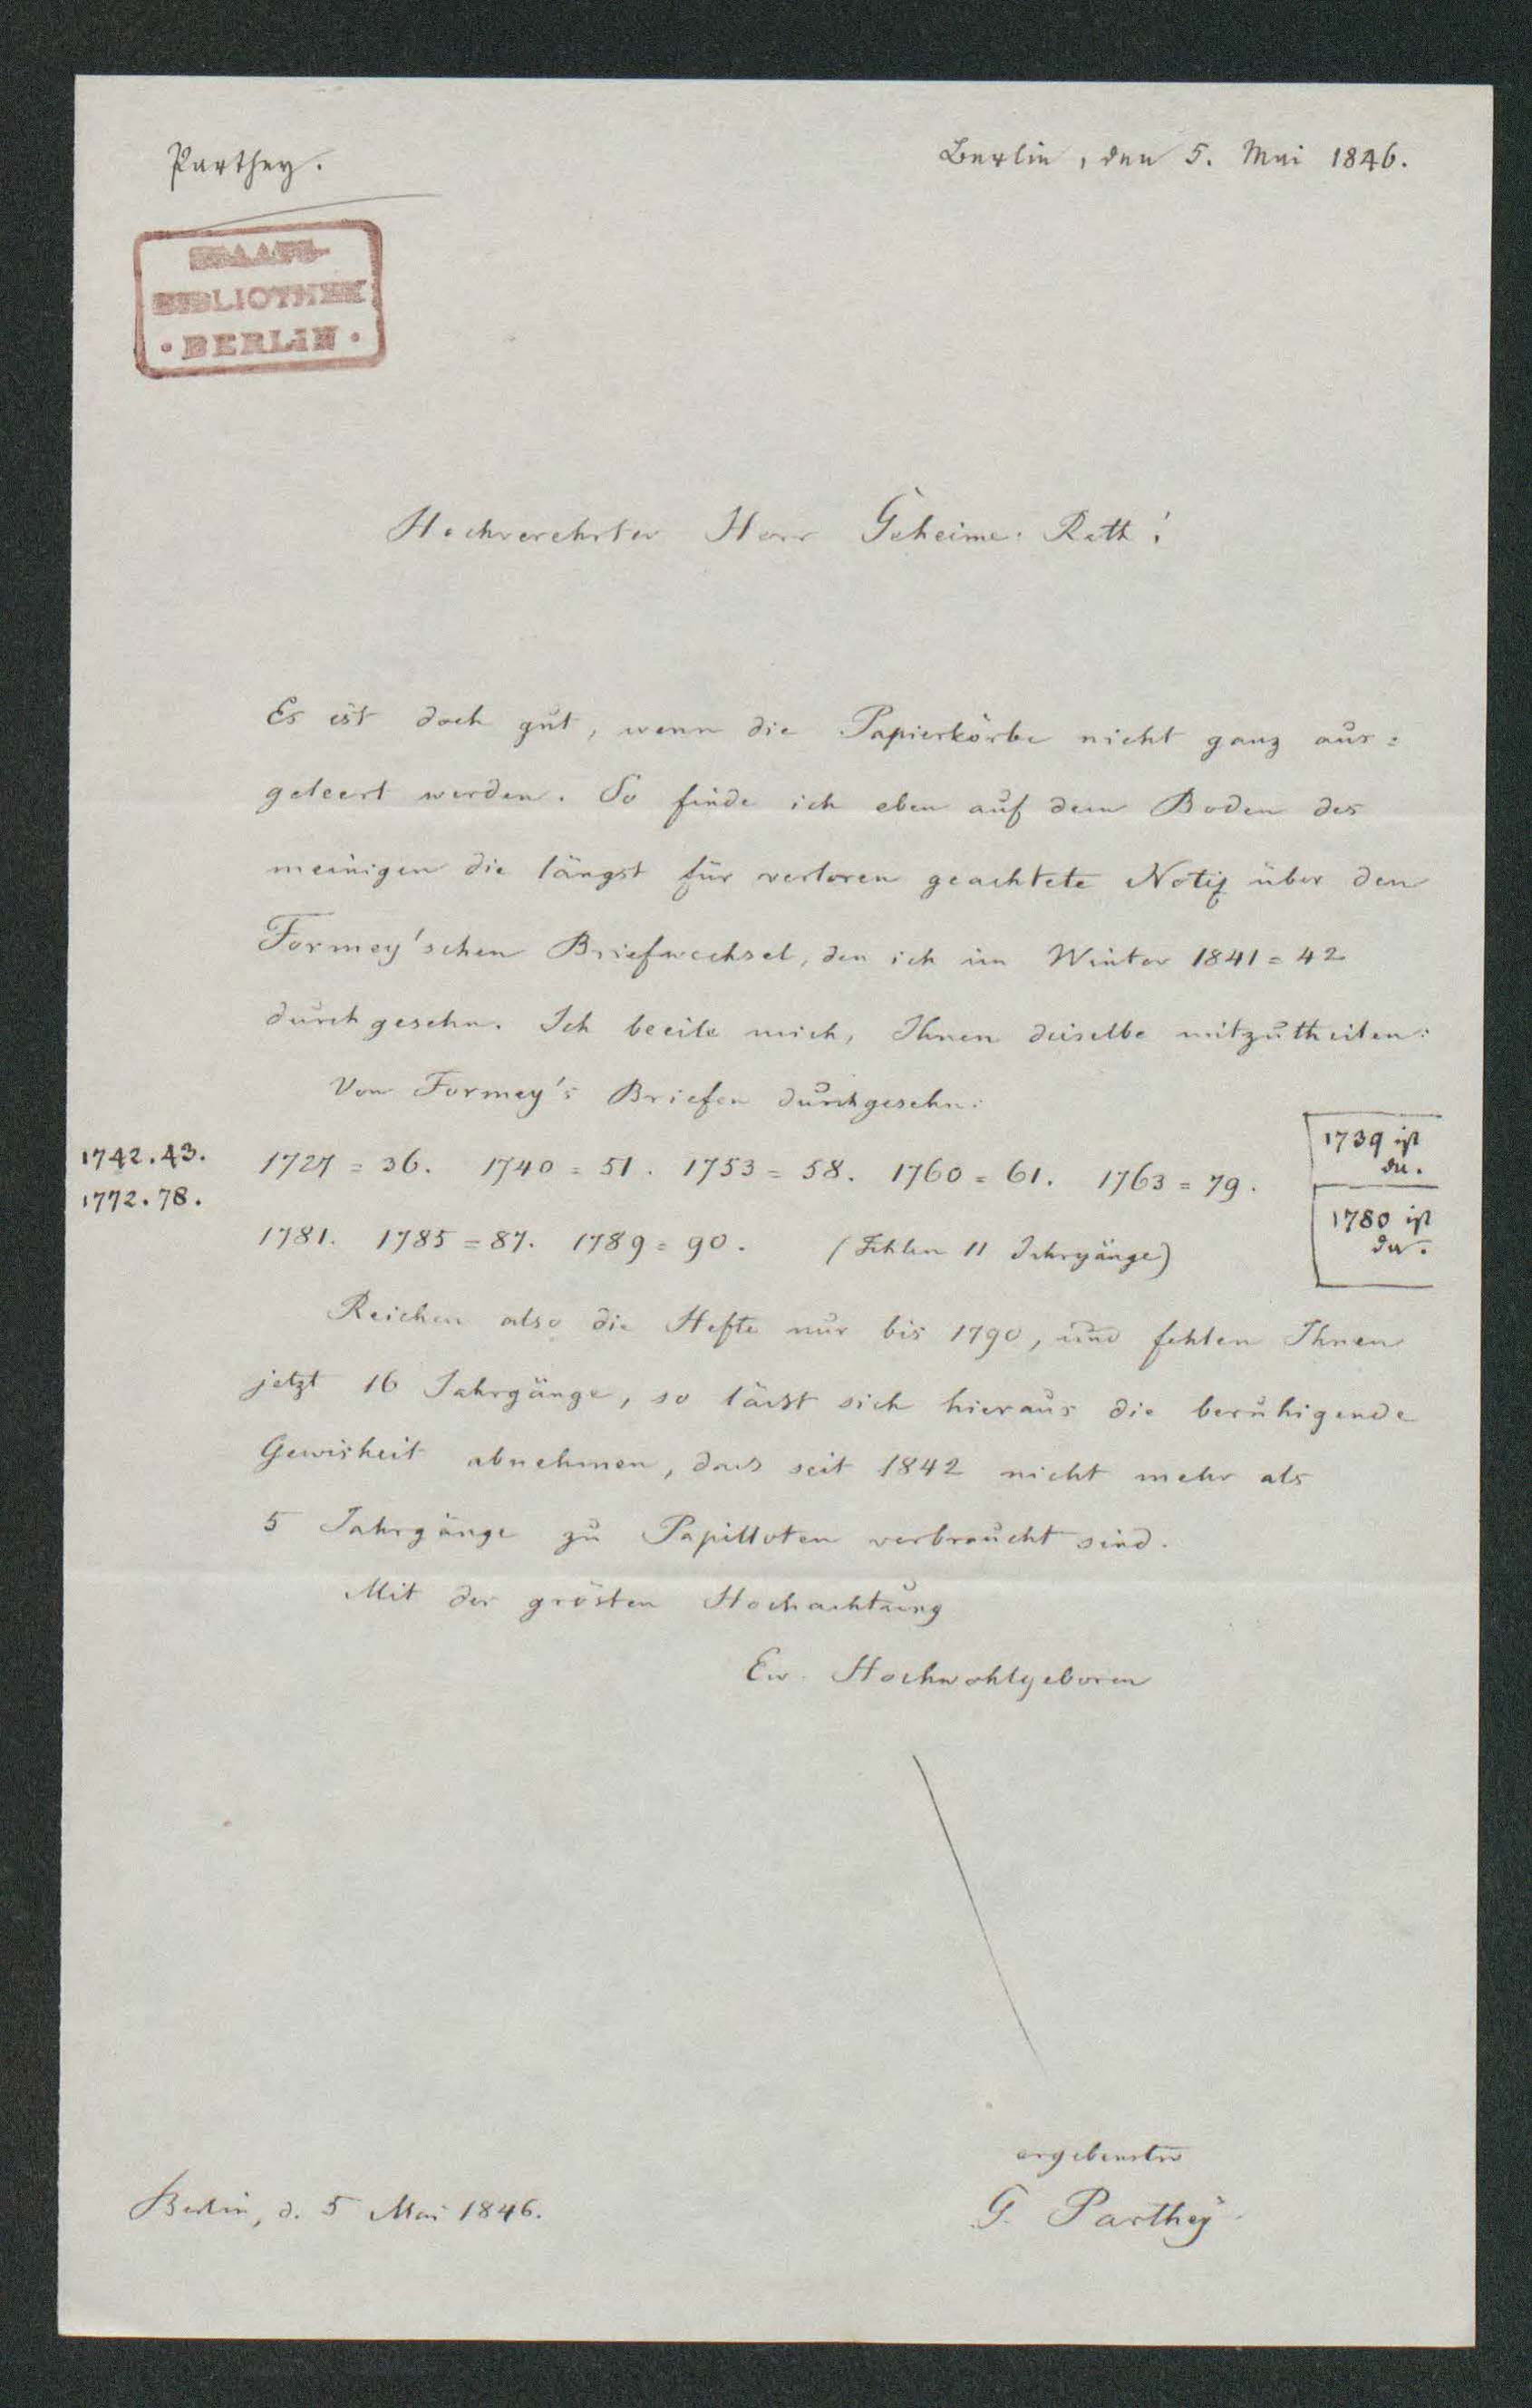 Parthey.
Berlin, den 5. Mai 1846.
STAATS-
BIBLIOTHEK
• BERLIN •
Hochverehrter Herr Geheime: Rath!
Es ist doch gut, wenn die Papierkörbe nicht ganz aus=
geleert werden. So finde ich eben auf dem Boden des
meinigen die längst für verloren geachtete Notiz über den
Formey'schen Briefwechsel, den ich im Winter 1841=42
durchgesehn. Ich beeile mich, Ihnen dieselbe mitzutheilen:
Von Formey's Briefen durchgesehn:
1742.43.
1772.78.
1727=36. 1740=51. 1753=58. 1760=61. 1763=79.
1781. 1785=87. 1789=90. (Fehlen 11 Jahrgänge)
1739 ist
da.
1780 ist
da.
Reichen also die Hefte nur bis 1790, und fehlen Ihnen
jetzt 16 Jahrgänge, so lässt sich hieraus die beruhigende
Gewisheit abnehmen, dass seit 1842 nicht mehr als
5 Jahrgänge zu Papilloten verbraucht sind.
Mit der grösten Hochachtung
Ew. Hochwohlgeboren
ergebenster
G. Parthey
Berlin, d. 5 Mai 1846.